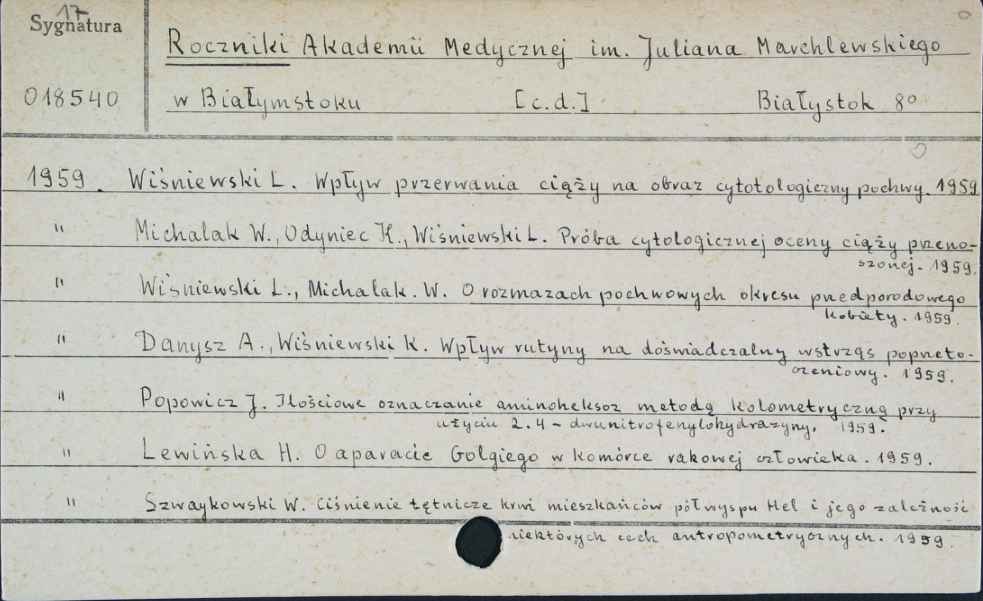 17
Sygnatura
Roczniki Akademii Medycznej im. Juliana Marchlewskiego
018540
w Białymstoku [c.d.] Białystok 8°
1959. Wiśniewski L. Wpływ przerwania ciąży na obraz cytotologiczny pochwy. 1959
" Michalak W., Odyniec K., Wiśniewski L. Próba cytologicznej oceny ciąży przeno-
szonej. 1959.
" Wiśniewski L., Michalak. W. O rozmazach pochwowych okresu przedporodowego
kobiety. 1959.
" Danysz A., Wiśniewski K. Wpływ rutyny na doświadczalny wstrząs poprzeto-
czeniowy. 1959.
" Popowicz J. Ilościowe oznaczanie aminoheksoz metodą kolometryczną przy
użyciu 2.4 - dwunitrofenylohydrazyny. 1959.
" Lewińska H. O aparacie Golgiego w komórce rakowej człowieka. 1959.
" Szwaykowski W. Ciśnienie tętnicze krwi mieszkańców półwyspu Hel i jego zależność
niektórych cech antropometrycznych. 1959.